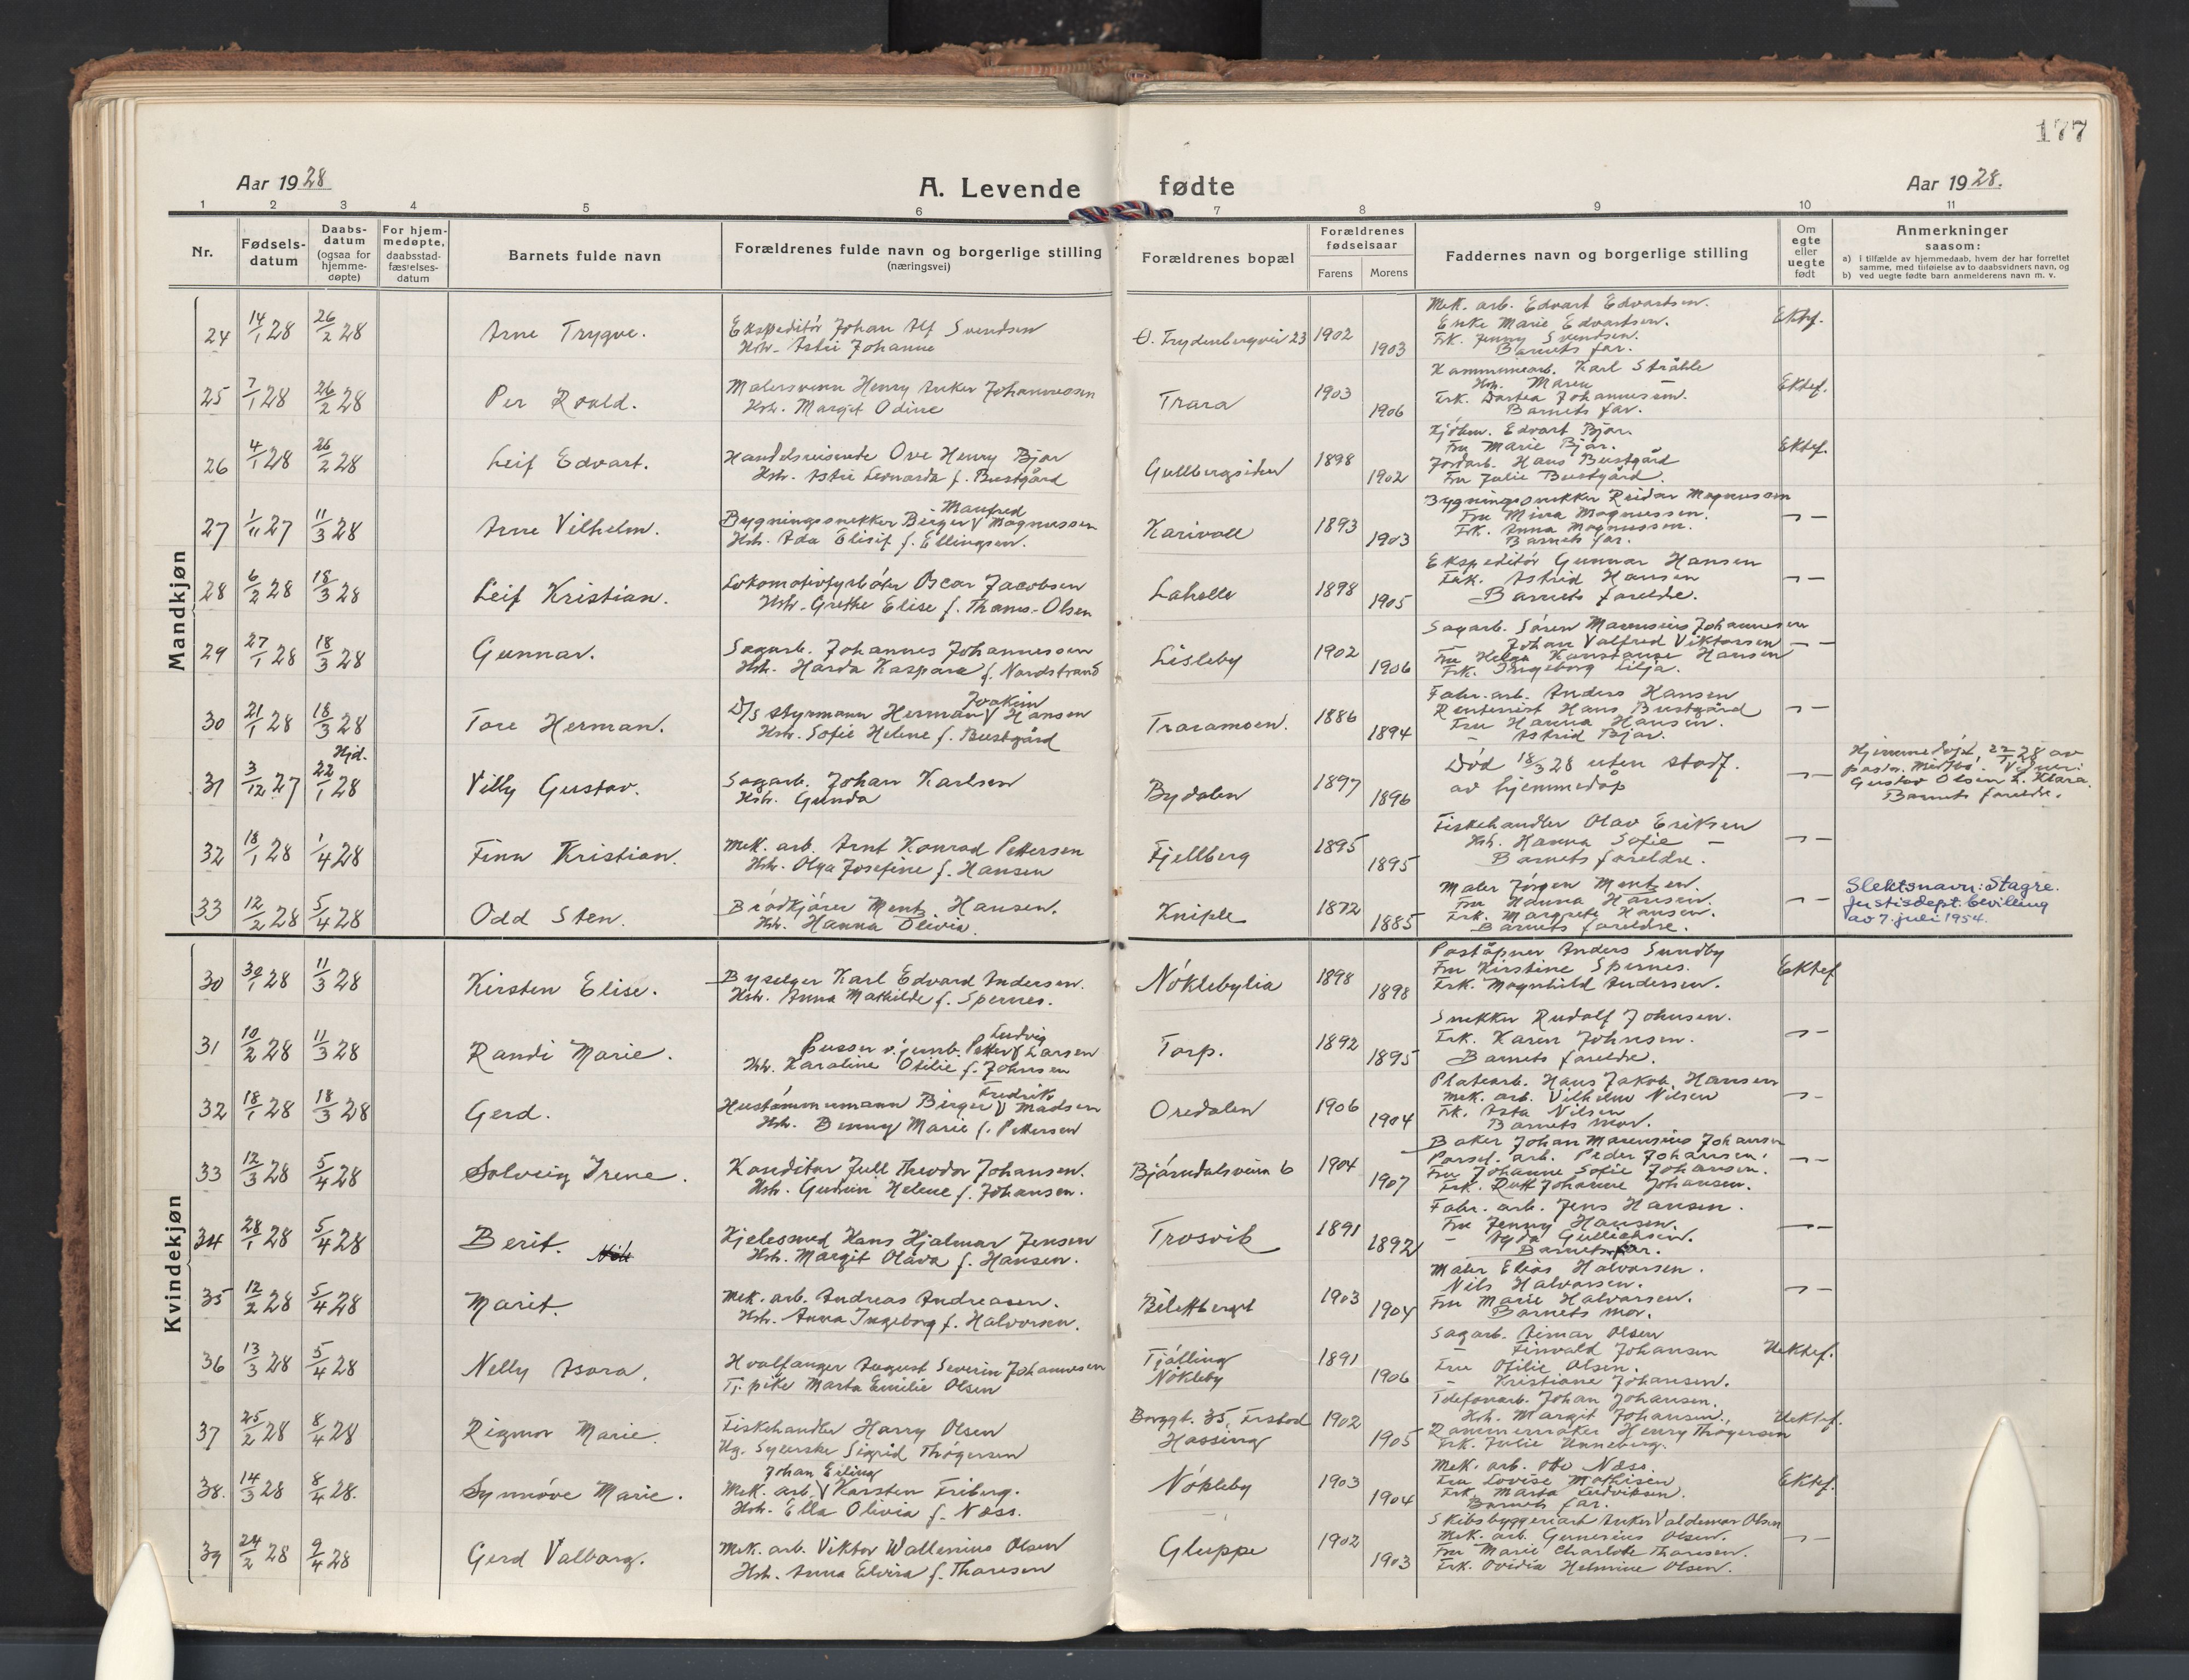 177
Aar 1928
A. Levende fødte
Aar 1928.
1 2 3 4 5 6 7 8 9 10 11
Nr.
Fødsels-
datum
Daabs-
datum
(ogsaa for
hjemme-
døpte)
For hjem-
medøpte,
daabsstad-
fæstelses-
datum
Barnets fulde navn
Forældrenes fulde navn og borgerlige stilling
(næringsvei)
Forældrenes bopæl
Forældrenes
fødselsaar
Farens Morens
Faddernes navn og borgerlige stilling
Om
egte
eller
uegte
født
Anmerkninger
saasom:
a) i tilfælde av hjemmedaab, hvem der har forrettet
samme, med tilføielse av to daabsvidners navn, og
b) ved uegte fødte barn anmelderens navn m. v.
Mandkjøn
24 14/1 28 26/2 28 Arne Trygve.
Ekspeditör Johan Alf Svendsen
Hstr. Astri Johanne
Ö. Frydenbergvei 23 1902 1903
Mek. arb. Edvart Edvartsen.
Enke Marie Edvartsen.
Frk. Jenny Svendsen.
Barnets far.
Ektef.
25 7/1 28 26/2 28 Per Roald.
Malersvenn Henry Anker Johannessen
Hstr. Margit Odine
Trara 1903 1906
Kommunearb. Karl Stråhle
Hstr. Maren —
Frk. Dortea Johannessen.
Barnets far.
Ektef.
26 4/1 28 26/2 28 Leif Edvart.
Handelsreisende Ove Henry Bjar
Hstr. Astri Leonarda f. Bustgård
Gullbergsiden 1898 1902
Kjöbm. Edvart Bjar.
Fru Marie Bjar.
Jordarb. Hans Bustgård
Fru Julie Bustgård.
Ektef.
27 1/11 27 11/3 28 Arne Vilhelm.
Manfred
Bygningssnekker Birger V Magnussen
Hstr. Ada Elisif f. Ellingsen.
Karivold 1893 1903
Bygningssnekker Reidar Magnussen
Fru Mina Magnussen.
Frk. Anna Magnussen.
Barnets far.
28 6/2 28 18/3 28 Leif Kristian.
Lokomotivfyrböter Oscar Jacobsen
Hstr. Grethe Elise f. Thams-Olsen
Lahelle 1898 1905
Ekspeditör Gunnar Hansen
Frk. Astrid Hansen
Barnets foreldre.
29 27/1 28 18/3 28 Gunnar.
Sagarb. Johannes Johannessen
Hstr. Harda Kaspara f. Nordstrand
Lisleby 1902 1906
Sagarb. Sören Marensius Johannesen
— Johan Valfred Viktorsen
Fru Helga Konstanse Hansen
Frk. Ingeborg Lilja.
30 21/1 28 18/3 28 Tore Herman.
Joakim
D/s styrmann Herman V Hansen
Hstr. Sofie Helene f. Bustgård
Traramoen. 1886 1894
Fabr. arb. Anders Hansen
Rentenist Hans Bustgård
Fru Hanna Hansen.
— Astrid Bjar.
31 3/12 27 Hjd. 22/1 28 Villy Gustav.
Sagarb. Johan Karlsen
Hstr. Gunda
Bydalen 1897 1896
Död 18/3 28 uten stadf.
av hjemmedåp
Hjemmedöpt 22/1 28 av
Gustav Olsen & Klara.
Barnets foreldre.
32 18/1 28 1/4 28 Finn Kristian.
Mek. arb. Arnt Konrad Pettersen
Hstr. Olga Josefine f. Hansen
Fjellberg 1895 1895
Fiskehandler Olav Eriksen
Hstr. Hanna Sofie —
Barnets foreldre.
33 12/2 28 5/4 28 Odd Sten.
Brödkjörer Ments Hansen.
Hstr. Hanna Olivia.
Kniple 1872 1885
Maler Jörgen Mentzen.
Fru Hanna Hansen.
Frk. Margrete Hansen.
Barnets foreldre.
Slektsnavn: Stagre.
Justisdept. bevilling
av 7. juli 1954.
Kvindekjøn
30 30/1 28 11/3 28 Kirsten Elise.
Byselger Karl Edvard Andersen.
Hstr. Anna Mathilde f. Spernes.
Nöklebylia 1898 1898
Poståpner Anders Sundby
Fru Kirstine Spernes.
Frk. Magnhild Andersen.
Ektef
31 10/2 28 11/3 28 Randi Marie.
Ludvig
Pusser v. jernb. Petter V Larsen
Hstr. Karoline Otilie f. Johnsen
Torp. 1892 1895
Snekker Rudolf Johnsen.
Frk. Karen Johnsen.
Barnets foreldre.
32 18/1 28 18/3 28 Gerd.
Fredrik
Hustömmermann Birger V Madsen
Hstr. Benny Marie f. Pettersen
Oredalen 1906 1904
Platearb. Hans Jakob Hansen
Mek. arb. Vilhelm Nilsen
Frk. Asta Nilsen
Barnets mor.
33 12/3 28 5/4 28 Solveig Irene.
Konditor Jull Theodor Johansen.
Hstr. Gudrun Helene f. Johansen.
Bjørndalsveien 6 1904 1907
Baker Johan Marensius Johansen
Porsel. arb. Peder Johansen.
Fru Johanne Sofie Johansen.
Frk. Rutt Johanne Johansen.
34 28/1 28 5/4 28 Berit.
Kjelesmed Hans Hjalmar Jensen
Hstr. Margit Olava f. Hansen.
Trosvik 1891 1892
Fabr. arb. Jens Hansen.
Fru Jenny Hansen.
— Agda Gulliksen.
Barnets far.
35 12/2 28 5/4 28 Marit.
Mek. arb. Andreas Andreasen.
Hstr. Anna Ingeborg f. Halvorsen.
Bilettberget 1903 1904
Maler Elias Halvorsen.
Nils Halvorsen.
Fru Marie Halvorsen.
Barnets mor.
36 13/3 28 5/4 28 Nelly Asora.
Hvalfanger August Severin Johannesen
Tj. pike Marta Emilie Olsen
Tjölling
Nökleby 1891 1906
Sagarb. Aimar Olsen
— Finvald Johansen
Fru Otilie Olsen.
— Kristiane Johansen.
Uektef.
37 25/2 28 8/4 28 Rigmor Marie.
Fiskehandler Harry Olsen
Ug. Syerske Sigrid Thögersen
Borggt. 35, Frstad
Hassing 1902 1905
Telefonarb. Johan Johansen.
Hstr. Margit Johansen.
Rammemaker Henry Thögersen
Frk. Julie Unneberg.
Uektef.
38. 14/3 28 8/4 28. Synnöve Marie.
Johan Eiling
Mek. arb. V Karsten Friberg.
Hstr. Ella Olivia f. Næss.
Nökleby 1903 1904
Mek. arb. Otto Næss.
Fru Lovise Mathisen
Frk. Marta Ludviksen.
Barnets far.
Ektef.
39 24/2 28 9/4 28 Gerd Valborg.
Mek. arb. Viktor Wallenius Olsen
Hstr. Anna Elvira f. Thoresen
Gluppe 1902 1903
Skibsbyggeriarb Anker Valdemar Olsen
Mek. arb. Gunerius Olsen.
Fru Marie Charlotte Thoresen.
Frk. Ovidia Helmine Olsen.